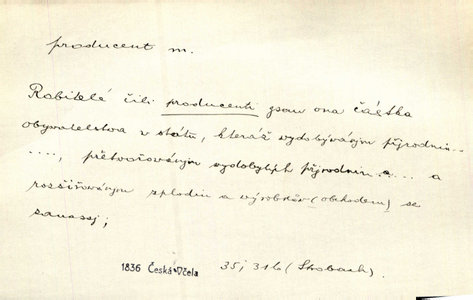 producent m.
Robitelé čili producenti jsou ona částka
obyvatelstva v státu, kteráž vydobýváním přírodnin...
...., přetvořováním vydobytých přírodnin .... a
rozšiřováním zplodin a výrobků (obchodem) se
zanášej;
1836 Česká Včela 35, 316 (Skobach).